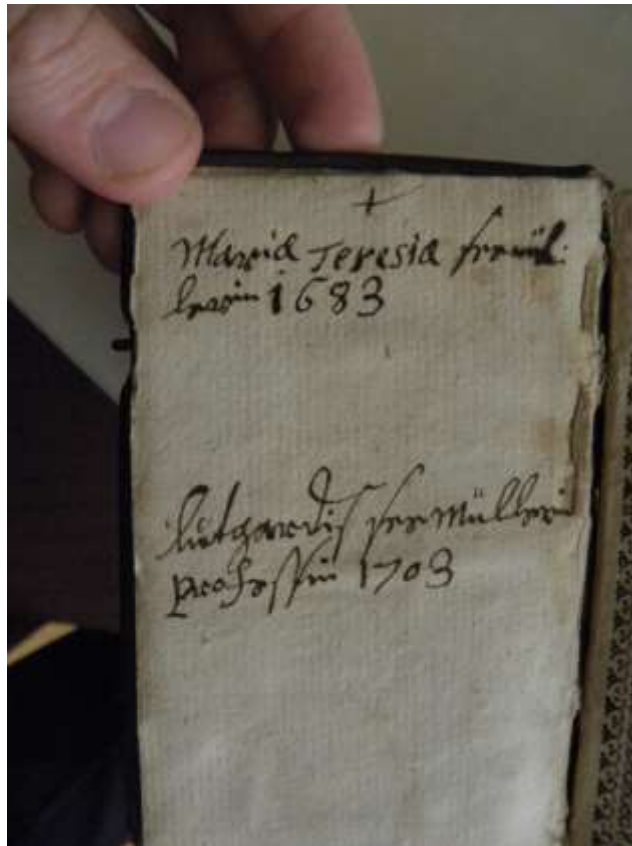 Maria Teresia
lerin 1683
lutgardis seemüllerin
professin 1703